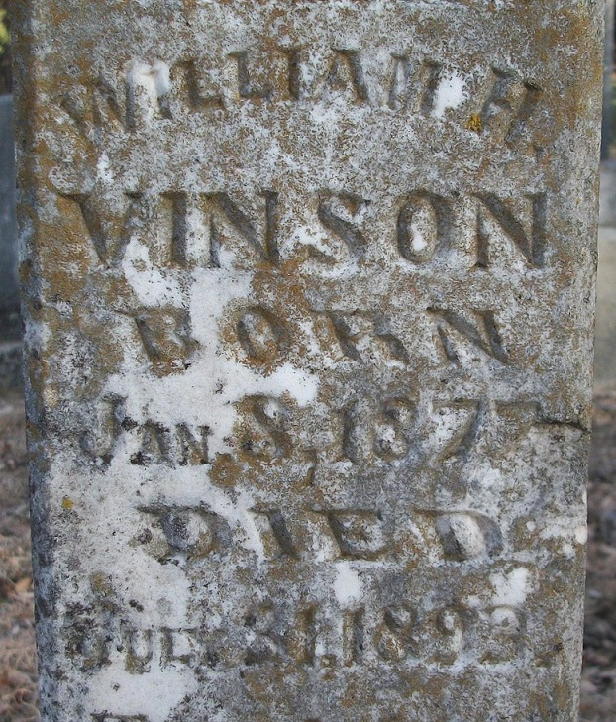 WILLIAM H.
VINSON
BORN
JAN. 8, 1877
DIED
JULY 31, 1893.